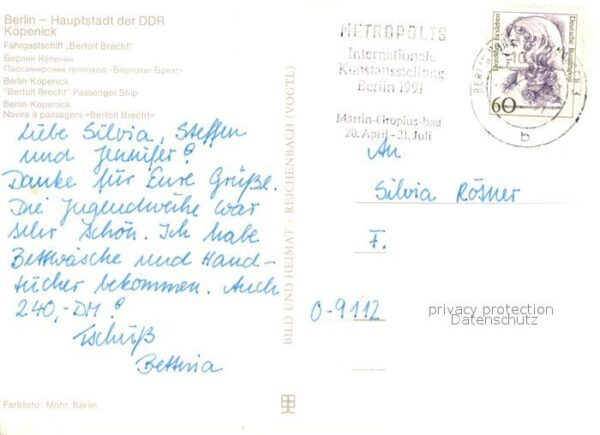 Berlin – Hauptstadt der DDR
Köpenick
Fahrgastschiff „Bertolt Brecht"
Берлин-Кёпеник
Пассажирский теплоход «Бертольт Брехт»
Berlin-Köpenick
"Bertolt Brecht" Passenger Ship
Berlin-Köpenick
Navire à passagers «Bertolt Brecht»
Liebe Silvia, Steffen
und Jennifer!
Danke für Eure Grüße.
Die Jugendweihe war
sehr schön. Ich habe
Bettwäsche und Hand-
tücher bekommen. Auch
240,-DM!
Tschüß
Bettina
Farbfoto: Mohr, Berlin
BILD UND HEIMAT · REICHENBACH (VOGTL)
METROPOLIS
Internationale
Kunstausstellung
Berlin 1991
Martin-Gropius-Bau
20. April - 21. Juli
BERLIN
b
Dorothea Erxleben
Deutsche Bundespost
60
An
Silvia Rösner
F.
O-9112
privacy protection
Datenschutz